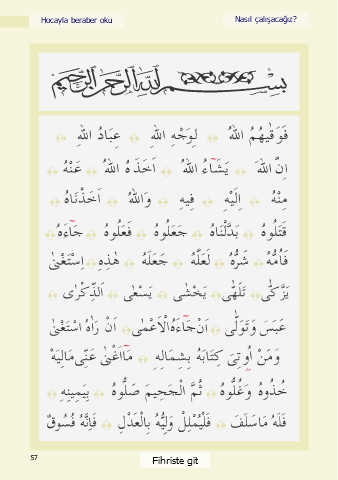 Hocayla beraber oku
Nasıl çalışacağız?
بِسْــــمِ اللهِ الرَّحْمٰنِ الرَّحِيمِ
فَوَقٰيهُمُ اللهُ ۞ لِوَجْهِ اللهِ ۞ عِبَادُ اللهِ ۞
اِنَّ اللهَ ۞ يَشَٓاءُ اللهُ ۞ اَخَذَهُ اللهُ ۞ عَنْهُ ۞
مِنْهُ ۞ اِلَيْهِ ۞ فِيهِ ۞ وَاللهُ ۞ اَخَذْنَاهُ ۞
قَتَلُوهُ ۞ بَدَّلْنَاهُ ۞ جَعَلُوهُ ۞ فَعَلُوهُ ۞ جَٓاءَهُ ۞
فَاُمُّهُ ۞ شَرُّهُ ۞ لَعَلَّهُ ۞ جَعَلَهُ ۞ هٰذِهِ ۞ اِسْتَغْنٰى
يَزَّكّٰى ۞ تَلَهّٰى ۞ يَخْشٰى ۞ يَسْعٰى ۞ اَلذِّكْرٰى ۞
عَبَسَ وَتَوَلّٰى ۞ اَنْ جَٓاءَهُ الْاَعْمٰى ۞ اَنْ رَاٰهُ اسْتَغْنٰى
وَمَنْ اُوتِيَ كِتَابَهُ بِشِمَالِهِ ۞ مَٓا اَغْنٰى عَنِّى مَالِيَهْ
خُذُوهُ وَغُلُّوهُ ۞ ثُمَّ الْجَحِيمَ صَلُّوهُ ۞ بِيَمِينِهِ ۞
فَلَهُ مَاسَلَفَ ۞ فَلْيُمْلِلْ وَلِيُّهُ بِالْعَدْلِ ۞ فَاِنَّهُ فُسُوقٌ
57
Fihriste git